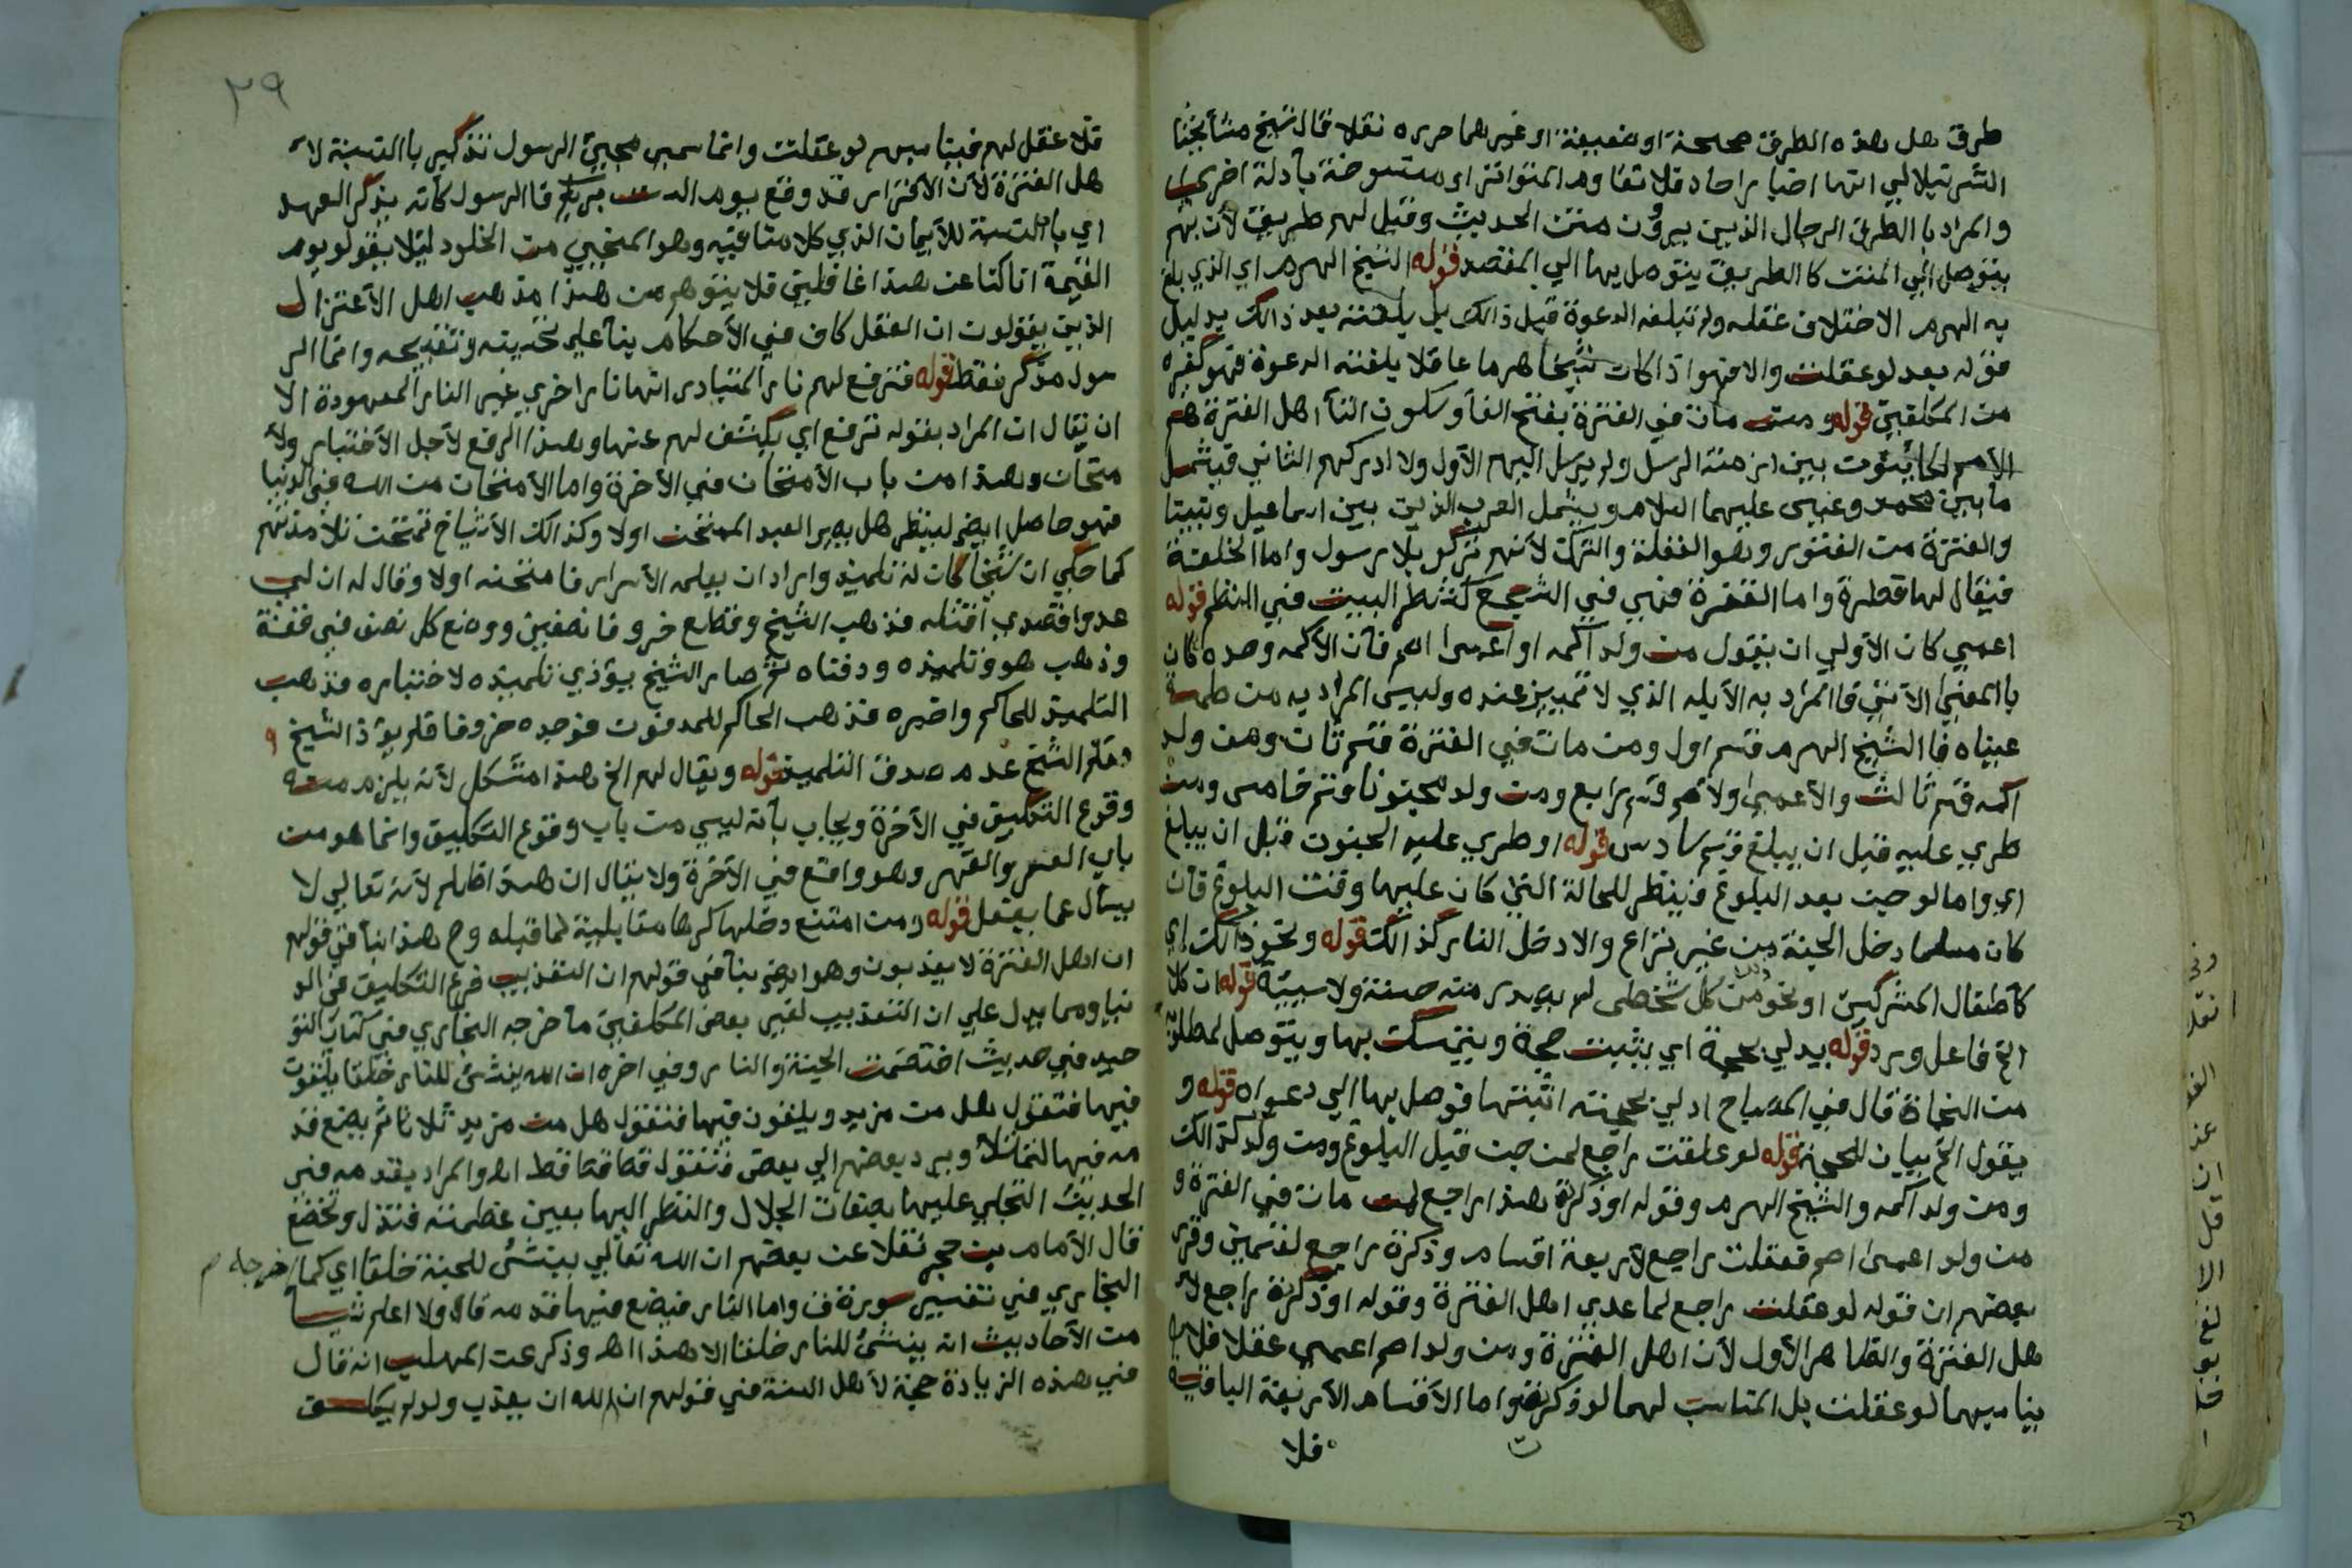 طرق هل هذه الطرق صحيحة او ضعيفة او غيرهما حرره نقلا قال شيخ مشايخنا
الشرنبلالي انها اخبار احاد فلا تقاوم المتواتر او منسوخة بأدلة اخري
والمراد با الطرق الرجال الذين يروون متن الحديث وقيل لهم طريق لأن بهم
يتوصل الي المتن كا الطريق يتوصل بها الي المقصد قوله الشيخ الهرم اي الذي بلغ
به الهرم الا ختلاف عقله ولم تبلغه الدعوة قبل ذالك بل بلغته بعد ذالك بدليل
قوله بعد لو عقلت والا فهو اذا كان شيخا هرما عاقلا بلغته الدعوة فهو كغيره
من المكلفين قوله ومن مات في الفترة بفتح الفأ وسكون التأ اهل الفترة هم
الأمم الكائنون بين ازمنة الرسل ولم يرسل اليهم الأول ولا ادركهم الثاني فيشمل
ما بين محمد وعيسى عليهما السلام ويشمل العرب الذين بين اسماعيل ونبينا
والفترة من الفتور وهو الغفلة والترك لأنهم تركو بلا رسول واما الخلقة
فيقال لها فطرة واما الفقرة فهي في السجع كشطر البيت في النظم قوله
اعمي كان الأولي ان يقول من ولد اكمه او اعمى اصم فأن الأكمه وحده كان
با المعني الأتي فا المراد به الأبله الذي لا تمييز عنده وليس المراد به من طمست
عيناه فا الشيخ الهرم قسم اول ومن مات في الفترة قسم ثان ومن ولد
اكمه قسم ثالث والأعمي ولأصم قسم رابع ومن ولد مجنونا قسم خامس ومن
طري عليه قبل ان يبلغ قسم سادس قوله او طري عليه الجنون قبل ان يبلغ
اي واما لو جن بعد البلوغ فينظر للحالة التي كان عليها وقت البلوغ فأن
كان مسلما دخل الجنة من غير نزاع والا دخل النار كذالك قوله ونحو ذالك اي
كأطفال المشركين او نحو من كل شخص لم يصدر منه حسنة ولا سيئة قوله ان كلا
الخ فاعل ورد قوله يدلي بحجة اي يثبت حجة ويتمسك بها ويتوصل لمطلوبه
من النجاة قال في المصباح ادلي بحجته اثبتها فوصل بها الي دعواه قوله و
يقول الخ بيان للحجة قوله لو عقلت راجع لمن جن قبل البلوغ ومن ولد كذالك
ومن ولد اكمه والشيخ الهرم وقوله او ذكرة هذا راجع لمن مات في الفترة و
من ولد اعمى اصم فعقلت راجع لأربعة اقسام وذكرة راجع لقسمين وقرر
بعضهم ان قوله لو عقلت راجع لما عدي اهل الفترة وقوله او ذكرة راجع لأ
هل الفترة والظاهر الأول لأن اهل الفترة ومن ولد اصم اعمي عقلا فلا
يناسبهما لو عقلت بل المناسب لهما لو ذكرة واما الأقسام الأربعة الباقية
فلا
٢٩
فلا عقل لهم فيناسبهم لو عقلت وانما سمي مجيئ الرسول تذكير با النسبة لأ
هل الفترة لأن الأقرار قد وقع يوم الست بربكم فا الرسول كأنه يذكر العهد
اي با النسبة للأيمان الذي كلامنا فيه وهو المنجي من الخلود ليلا يقولو يوم
القيمة انا كنا عن هذا غافلين فلا يتوهم من هذا مذهب اهل الأعتزال
الذين يقولون ان العقل كاف في الأحكام بنأ علي تحسينه وتقبيحه وانما الر
سول مذكر فقط قوله فترفع لهم نار المتبادر انها نار اخري غير النار المعهودة الا
ان يقال ان المراد بقوله ترفع اي يكشف لهم عنها وهذا الرفع لأجل الأختبار ولأ
متحان وهذا من باب الأمتحان في الأخرة واما الأمتحان من الله في الدنيا
فهو حاصل ايضا لينظر هل يصبر العبد الممتحن اولا وكذالك الأشياخ تمتحن تلامذتهم
كما حكي ان شيخا كان له تلميذ واراد ان يعلمه الأسرار فامتحنه اولا وقال له ان لي
عدوا قصدي اقتله فذهب الشيخ وقطع خروفا نصفين ووضع كل نصف في قفة
وذهب هو وتلميذه ودفناه ثم صار الشيخ يؤذي تلميذه لاختباره فذهب
التلميذ للحاكم واخبره فذهب الحاكم للمدفون فوجده خروفا فلم يؤذ الشيخ و
وعلم الشيخ عدم صدق التلميذ قوله ويقال لهم الخ هذا مشكل لأنه يلزم منه
وقوع التكليف في الأخرة ويجاب بأنه ليس من باب وقوع التكليف وانما هو من
باب القهر وهو واقع في الأخرة ولا يقال ان هذا ظلم لأنه تعالي لا
يسأل عما يفعل قوله ومن امتنع دخلها كرها مقابلية لما قبله وح هذا ينافي قولهم
ان اهل الفترة لا يعذبون وهو ايضا ينافي قولهم ان التعذيب فرع التكليف في الد
نيا ومما يدل علي ان التعذيب لغير بعض المكلفين ما خرجه البخاري في كتاب التو
حيد في حديث اختصمت الجنة والنار وفي اخره ان الله ينشئ للنار خلقا يلقون
فيها فتقول هل من مزيد ويلقون فيها فتقول هل من مزيد ثلاثا ثم يضع قد
مه فيها لتمتلأ ويرد بعضهم الي بعض فتقول قط قط قط اه والمراد بقدمه في
الحديث التجلي عليها بصفات الجلال والنظر اليها بعين عظمته فتذل وتخضع
قال الأمام بن حجر نقلا عن بعضهم ان الله تعالي ينشئ للجنة خلقا اي كما اخرجه م
البخاري في تفسير سورة ق واما النار فيضع فيها قدمه قال ولا اعلم شيأ
من الأحاديث انه ينشئ للنار خلقا الا هذا اه وذكر عن المهلب انه قال
في هذه الزيادة حجة لأهل السنة في قولهم ان لله ان يعذب ولو لم يكلف